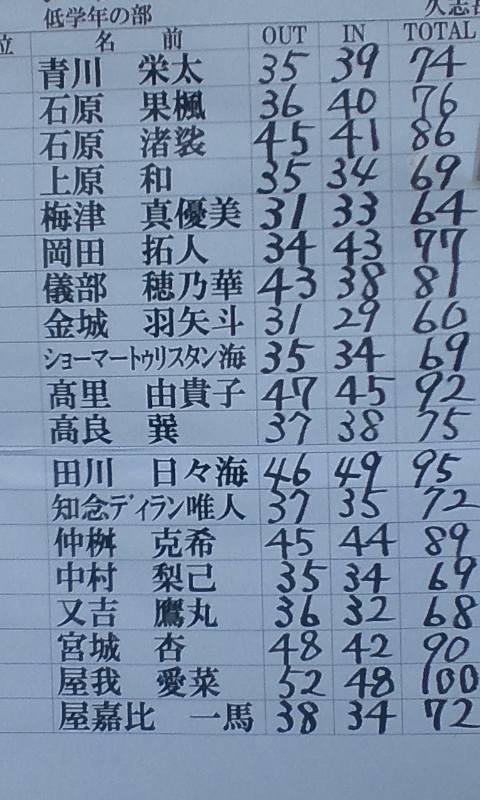 低学年の部
位 名 前 OUT IN TOTAL
青川 栄太 35 39 74
石原 果楓 36 40 76
石原 渚裟 45 41 86
上原 和 35 34 69
梅津 真優美 31 33 64
岡田 拓人 34 43 77
儀部 穂乃華 43 38 81
金城 羽矢斗 31 29 60
ショーマートゥリスタン海 35 34 69
高里 由貴子 47 45 92
高良 巽 37 38 75
田川 日々海 46 49 95
知念ディラン唯人 37 35 72
仲桝 克希 45 44 89
中村 梨己 35 34 69
又吉 鷹丸 36 32 68
宮城 杏 48 42 90
屋我 愛菜 52 48 100
屋嘉比 一馬 38 34 72